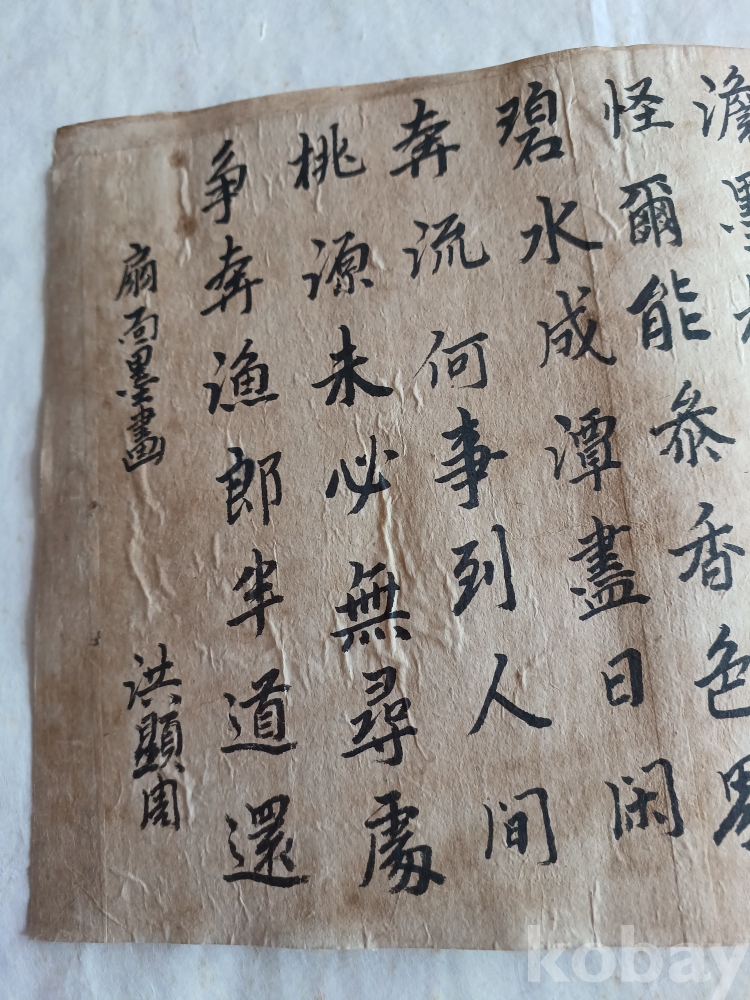 澹墨
怪爾能參香色
碧水成潭盡日闲
奔流何事到人间
桃源未必無尋處
争奔漁郎半道還
扇面墨畵
洪顯周
kobay